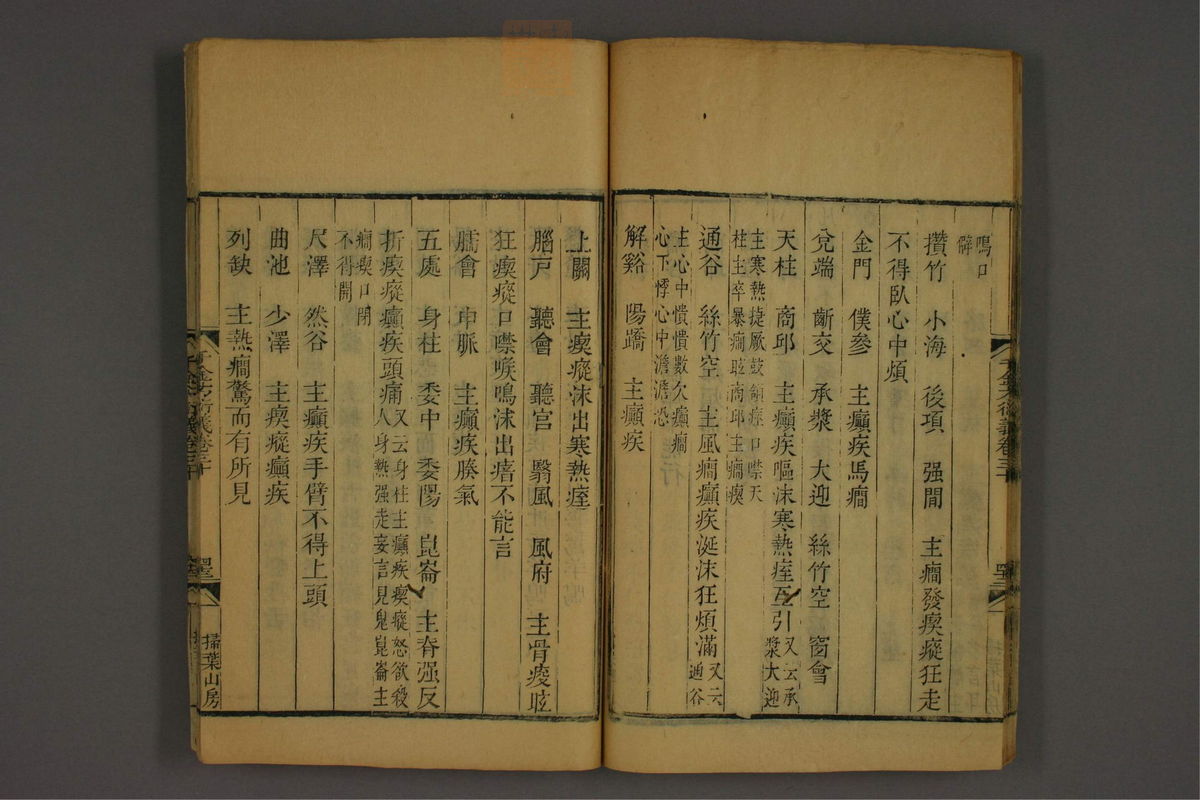 鳴口
僻
攢竹 小海 後項 强間 主癇發瘈瘲狂走
不得臥心中煩
金門 僕參 主癲疾馬癇
兌端 齗交 承漿 大迎 絲竹空 窗會
天柱 商邱 主癲疾嘔沫寒熱痓互引又云承漿大迎
主寒熱捷厥鼓頷痓口噤天
柱主卒暴癇眩商邱主癇瘈
通谷 絲竹空 主風癇癲疾涎沫狂煩滿又云通谷
主心中憒憒數欠癲癇
心下悸心中澹澹恐
解谿 陽蹻 主癲疾
上關 主瘈瘲沫出寒熱痓
腦戸 聽會 聽宫 翳風 風府 主骨痠眩
狂瘈瘲口噤喉鳴沫出瘖不能言
臑會 申脈 主癲疾腠氣
五處 身柱 委中 委陽 崑崙 主脊强反
折瘈瘲癲疾頭痛又云身柱主癲疾瘈瘲怒欲殺人身熱强走妄言見鬼崑崙主
癇瘈口閉
不得開
尺澤 然谷 主癲疾手臂不得上頭
曲池 少澤 主瘈瘲癲疾
列缺 主熱癇驚而有所見
千金方衍義卷三十
掃葉山房